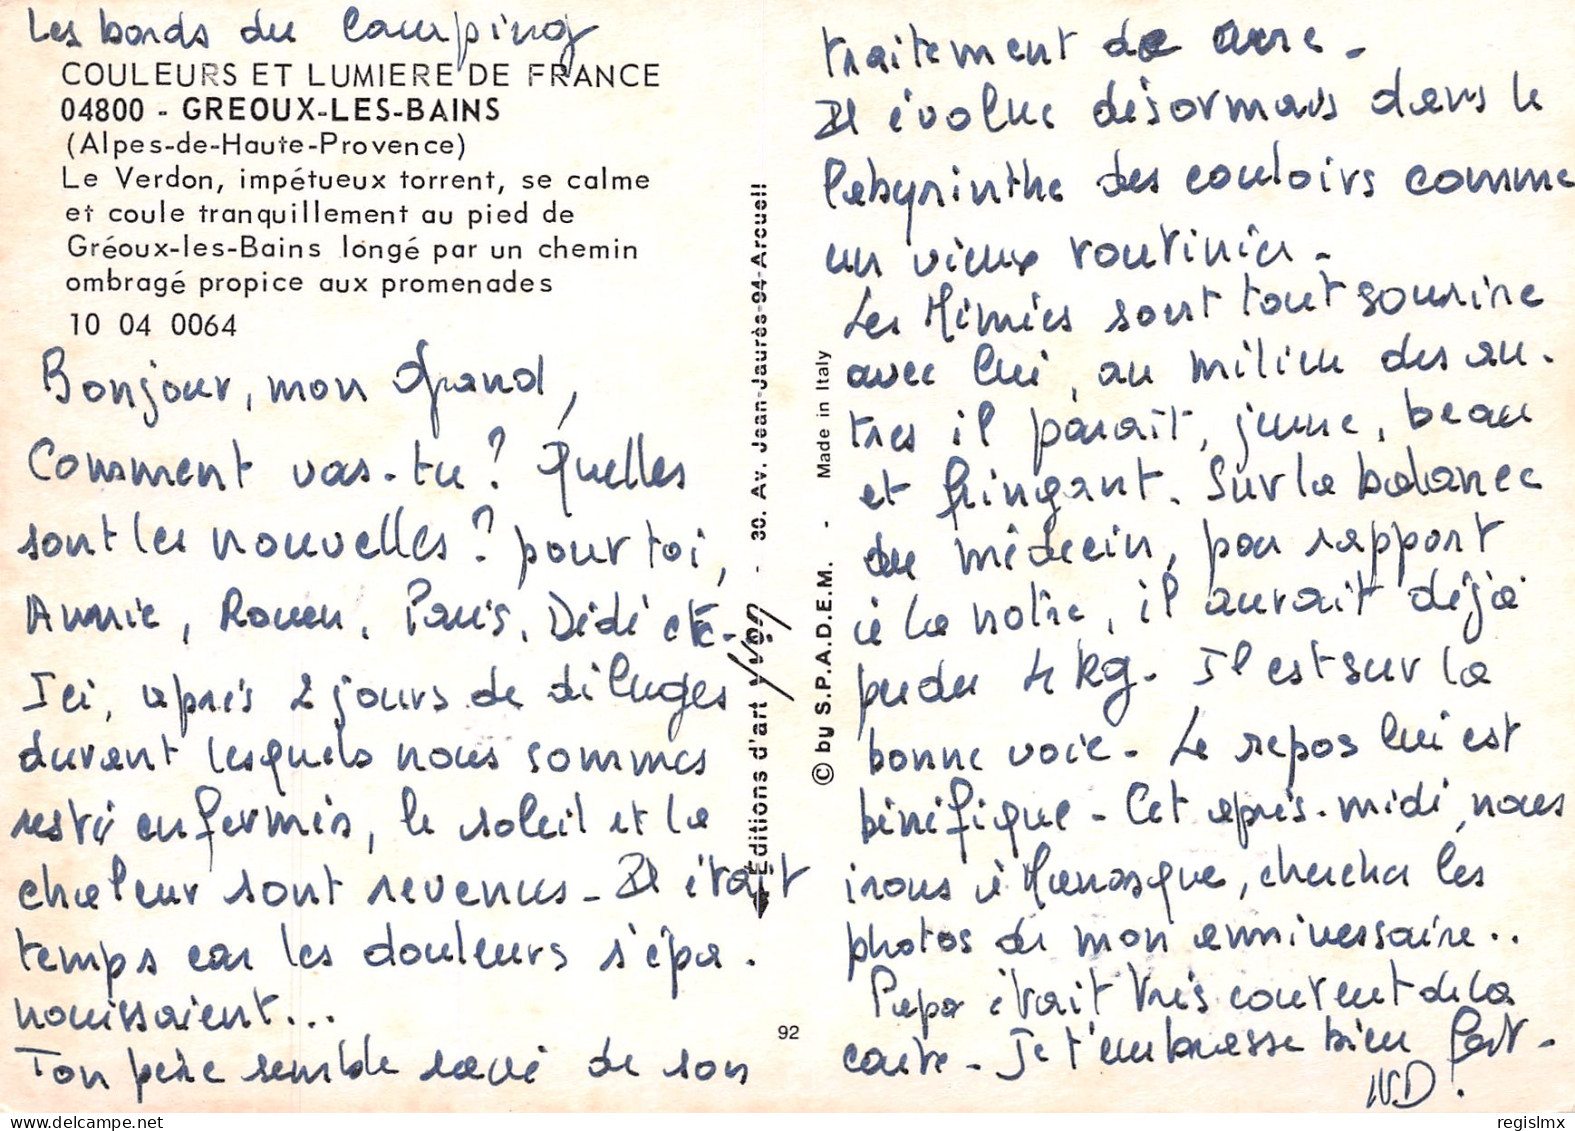 Les bords du Camping
COULEURS ET LUMIERE DE FRANCE
04800 - GREOUX-LES-BAINS
(Alpes-de-Haute-Provence)
Le Verdon, impétueux torrent, se calme
et coule tranquillement au pied de
Gréoux-les-Bains longé par un chemin
ombragé propice aux promenades
10 04 0064
Bonjour, mon Grand,
Comment vas-tu? Quelles
sont les nouvelles? pour toi,
Annie, Rouen, Paris, Dédé etc-
Ici, après 2 jours de déluges
durant lesquels nous sommes
restés enfermés, le soleil et la
chaleur sont revenus - Il était
temps car les douleurs s'épa-
nouissaient...
Ton père semble ravi de son
traitement de cure -
Il évolue désormais dans le
labyrinthe des couloirs comme
un vieux routinier -
Les Mimies sont tout sourire
avec lui, au milieu des au-
tres il paraît, jeune, beau
et fringant. Sur la balance
du médecin, par rapport
à la notre, il aurait déjà
perdu 4 kg - Il est sur la
bonne voie - Le repos lui est
bénéfique - Cet après-midi, nous
irons à Manosque, chercher les
photos de mon anniversaire..
Papa était très content de la
carte - Je t'embrasse bien fort -
N.D.
Editions d'art - 30, Av. Jean-Jaurès-94-Arcueil
© by S.P.A.D.E.M. - Made in Italy
92
regislmx